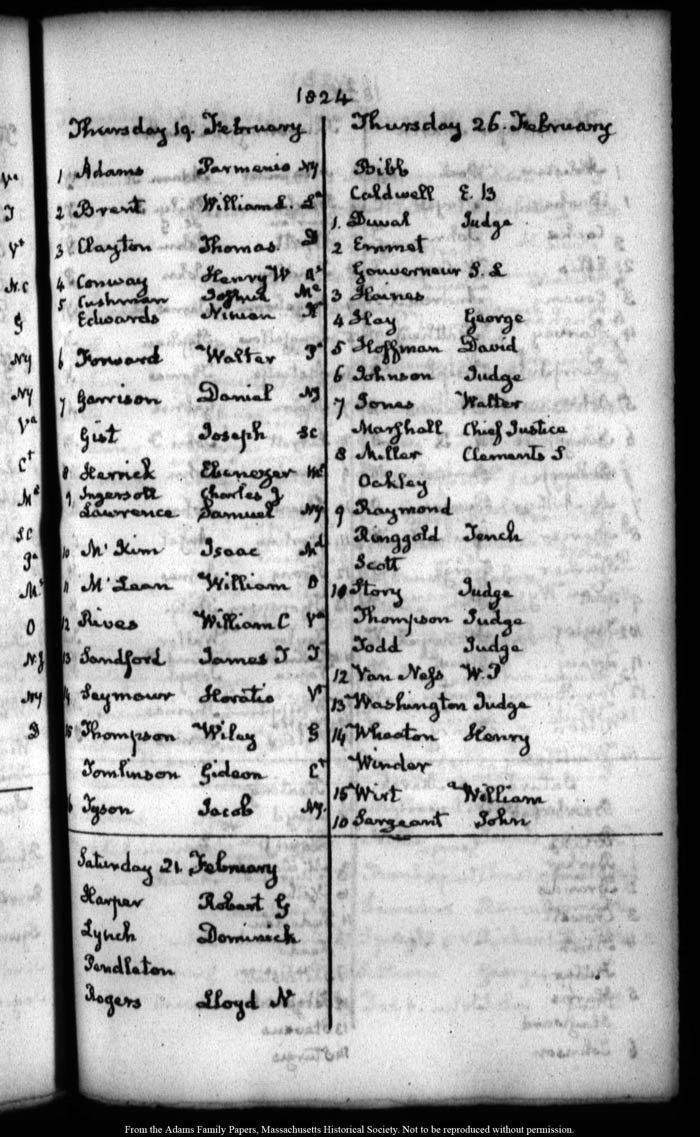 1824
Thursday 19. February
1 Adams Parmenio NY
2 Brent William L. La
3 Clayton Thomas D
4 Conway Henry W As
5 Cushman Joshua Me
Edwards Ninian
6 Forward Walter Pa
7 Garrison Daniel NJ
Gist Joseph SC
8 Herrick Ebenezer Me
9 Ingersoll Charles J
Lawrence Samuel NY
10 McKim Isaac Md
11 McLean William O
12 Rives William C Va
13 Sandford James T T
14 Seymour Horatio Vt
15 Thompson Wiley G
Tomlinson Gideon Ct
16 Tyson Jacob NY.
Saturday 21. February
Harper Robert G
Lynch Dominick
Pendleton
Rogers Lloyd N
Thursday 26. February
Bibb
Caldwell E. B
1. Duval Judge
2 Emmet
Gouverneur S. L
3 Haines
4 Hay George
5 Hoffman David
6 Johnson Judge
7 Jones Walter
Marshall Chief Justice
8 Miller Clements S
Oakley
9 Raymond
Ringgold Tench
Scott
10 Story Judge
Thompson Judge
Todd Judge
12 Van Ness W. P
13 Washington Judge
14 Wheaton Henry
Winder
15 Wirt William
10 Sargeant John
Va
T
Vt
N.C
G
NY
NY
Va
Ct
Me
SC
Pa
O
N.J
NY
D
From the Adams Family Papers, Massachusetts Historical Society. Not to be reproduced without permission.